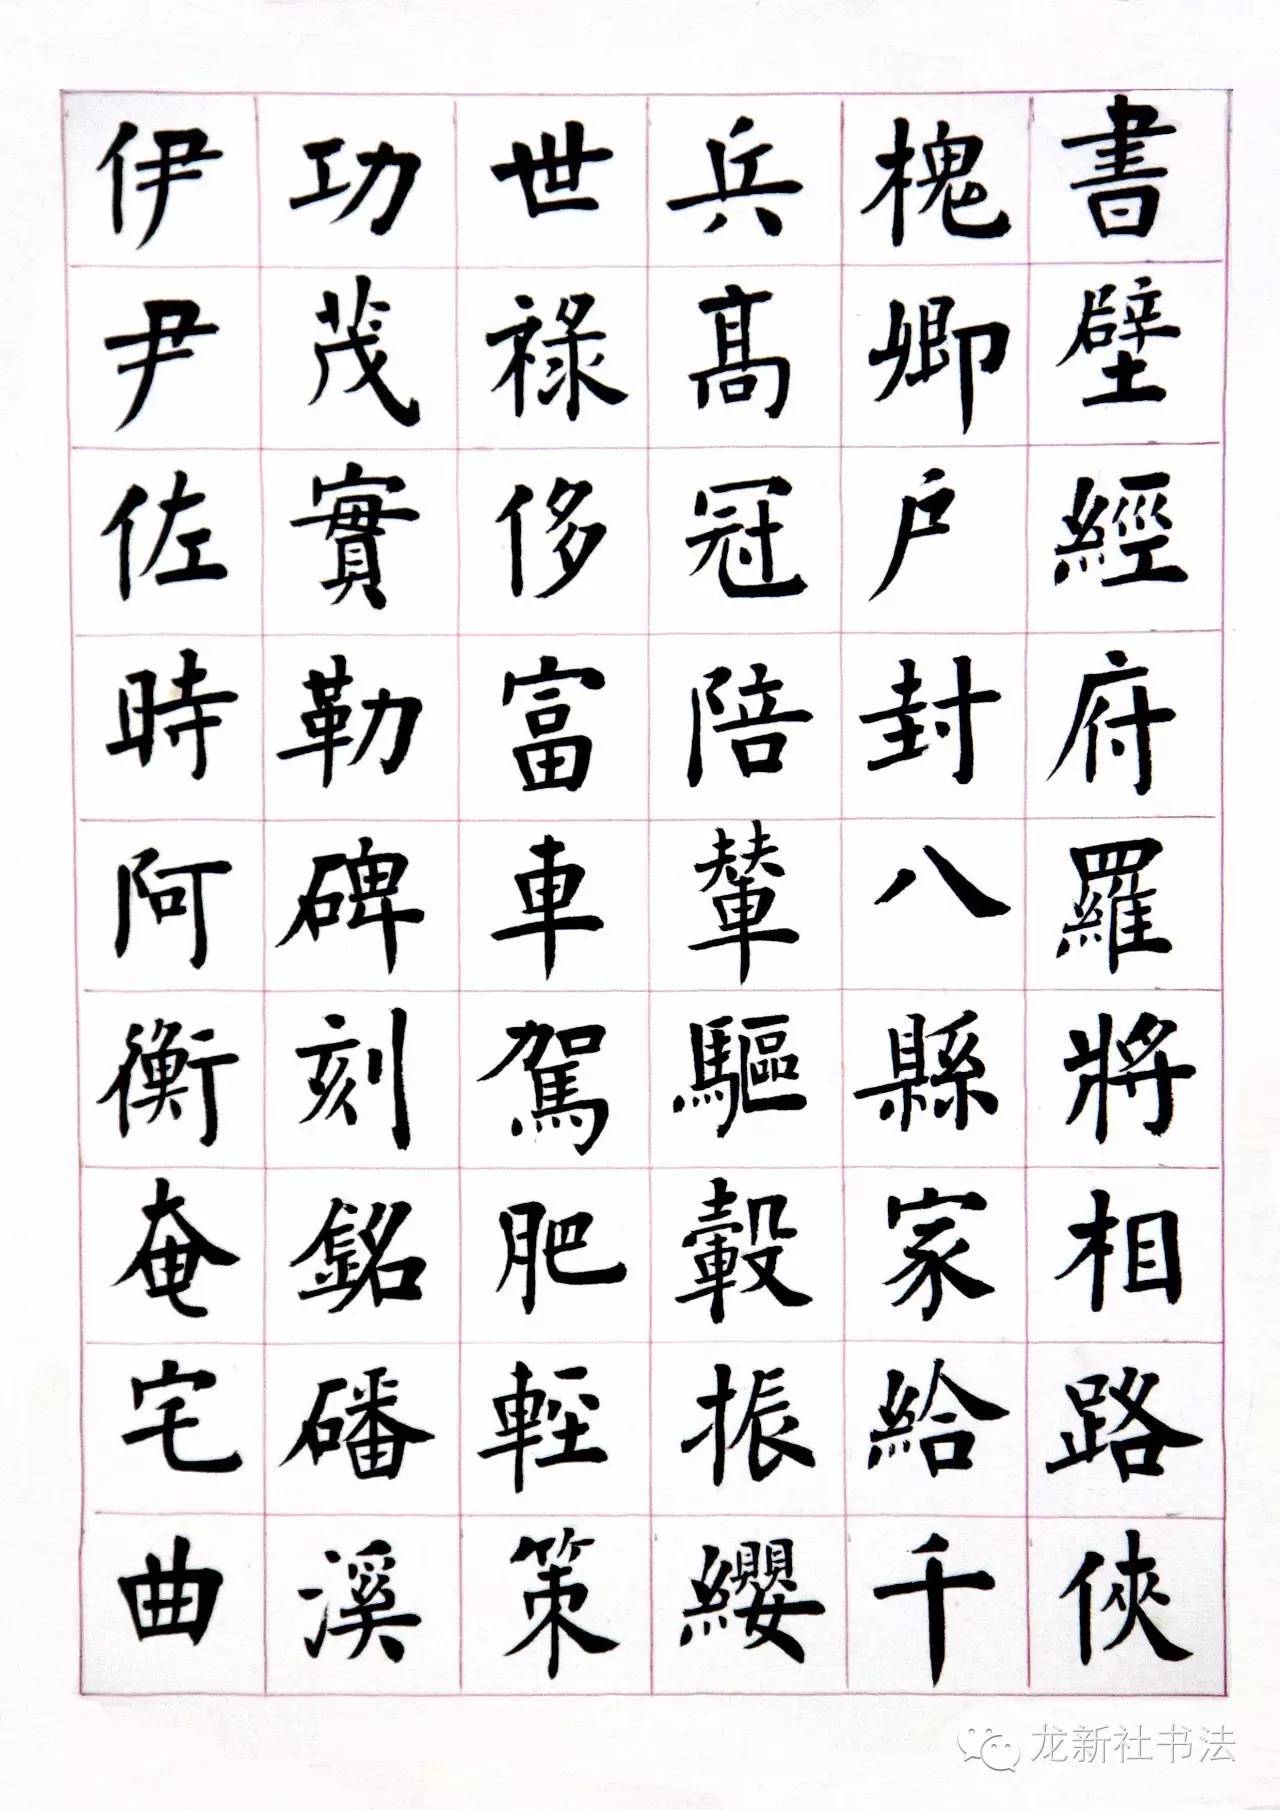 書壁經府羅將相路俠
槐卿户封八縣家給千
兵髙冠陪輦驅轂振纓
世祿侈富車駕肥輕策
功茂實勒碑刻銘磻溪
伊尹佐時阿衡奄宅曲
龙新社书法